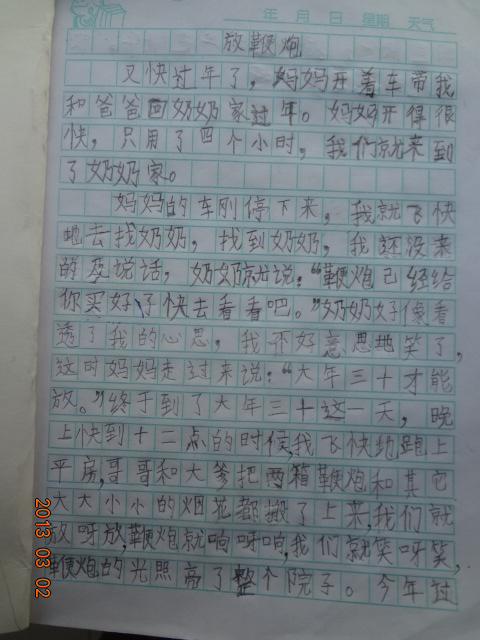 年 月 日 星期 天气
放鞭炮
又快过年了，妈妈开着车带我
和爸爸回奶奶家过年。妈妈开得很
快，只用了四个小时，我们就来到
了奶奶家。
妈妈的车刚停下来，我就飞快
地去找奶奶，找到奶奶，我还没来
的及说话，奶奶就说：“鞭炮已经给
你买好了快去看看吧。”奶奶好像看
透了我的心思，我不好意思地笑了，
这时妈妈走过来说：“大年三十才能
放。”终于到了大年三十这一天，晚
上快到十二点的时候，我飞快地跑上
平房，哥哥和大爹把两箱鞭炮和其它
大大小小的烟花都搬了上来，我们就
放呀放，鞭炮就响呀响，我们就笑呀笑，
鞭炮的光照亮了整个院子。今年过
2013 03 02